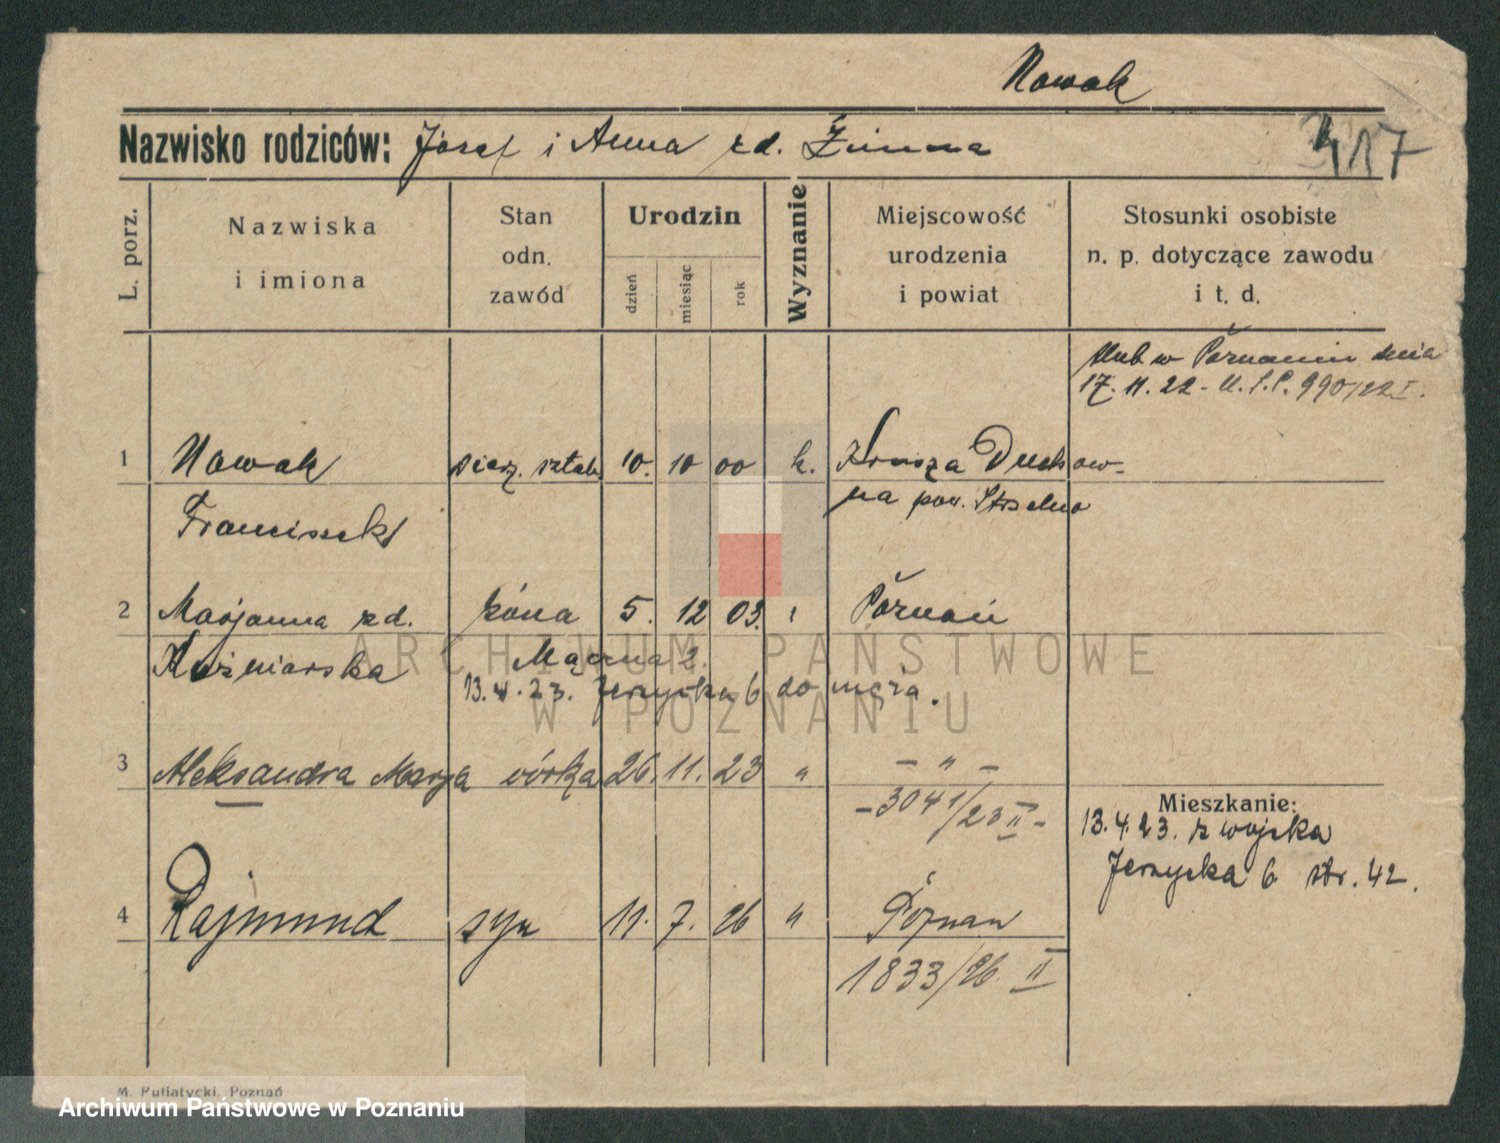 Nowak
Nazwisko rodziców: Józef i Anna zd. Zimna
417
L. porz.
Nazwiska i imiona
Stan odn. zawód
Urodzin
dzień miesiąc rok
Wyznanie
Miejscowość urodzenia i powiat
Stosunki osobiste n. p. dotyczące zawodu i t. d.
ślub w Poznaniu dnia
17. 11. 22 - U.S.C. 990/22 I.
1 Nowak sierż. sztab. 10. 10 00 k. Krusza Duchow-
Franciszek na pow. Strzelno
2 Marjanna zd. żona 5. 12 03. Poznań
Kuźniarska Mączna 2.
13.4.23. Jerzycka 6 do męża.
3 Aleksandra Marja córka 26. 11. 23 " - " -
-3041/23 II-
Mieszkanie:
13.4.23. z wojska
Jerzycka 6 str. 42.
4 Rajmund syn 11. 7. 26 " Poznań
1833/26 II
M. Putiatycki, Poznań
ARCHIWUM PAŃSTWOWE
W POZNANIU
Archiwum Państwowe w Poznaniu